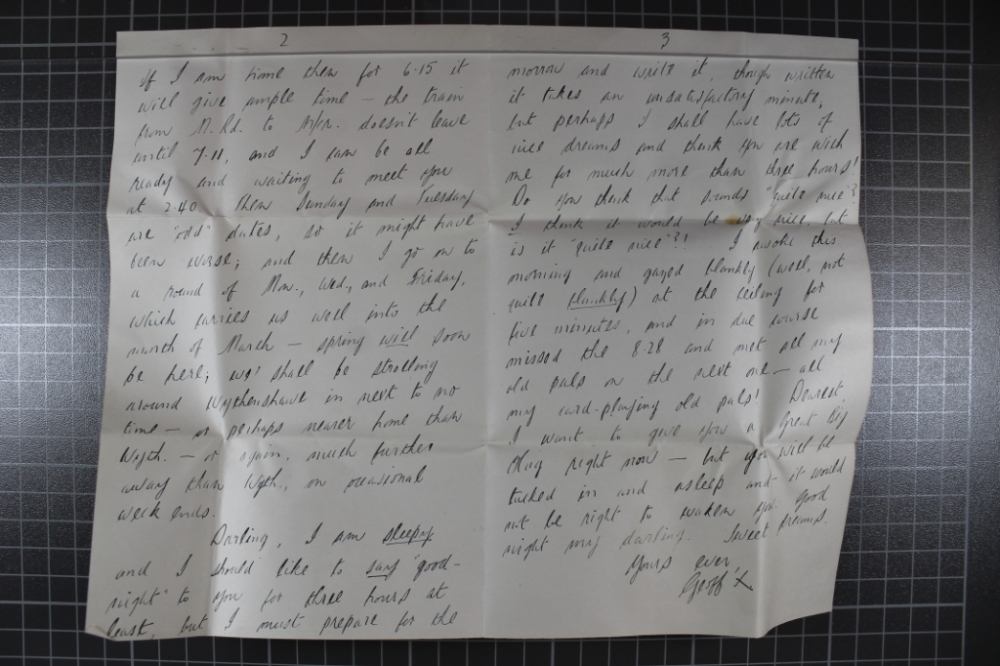 2
If I am home then for 6.15 it
will give ample time — the train
from M. Rd. to doesn't leave
until 7.11, and I can be all
ready and waiting to meet you
at 7.40. Then Sunday and Tuesday
are "odd" dates, so it might have
been worse; and then I go on to
a round of Mon., Wed., and Friday,
which carries us well into the
month of March — spring will soon
be here; we' shall be strolling
around Wythenshawe in next to no
time — or perhaps nearer home than
Wyth. — or again, much further
away than Wyth., on occasional
week ends.
Darling, I am sleepy
and I should like to say "good-
night" to you for three hours at
least, but I must prepare for the
3
morrow and write it, though written
it takes an unsatisfactory minute,
but perhaps I shall have lots of
nice dreams and think you are with
me for much more than three hours!
Do you think that sounds "quite nice"?
I think it would be very nice, but
is it "quite nice"?! I awoke this
morning and gazed blankly (well, not
quite blankly) at the ceiling for
five minutes, and in due course
missed the 8.28 and met all my
old pals on the next one — all
my card-playing old pals! Dearest,
I want to give you a Great Big
Hug right now — but you will be
tucked in and asleep and it would
not be right to waken you. Good
night my darling. Sweet dreams.
Yours ever,
Geoff x